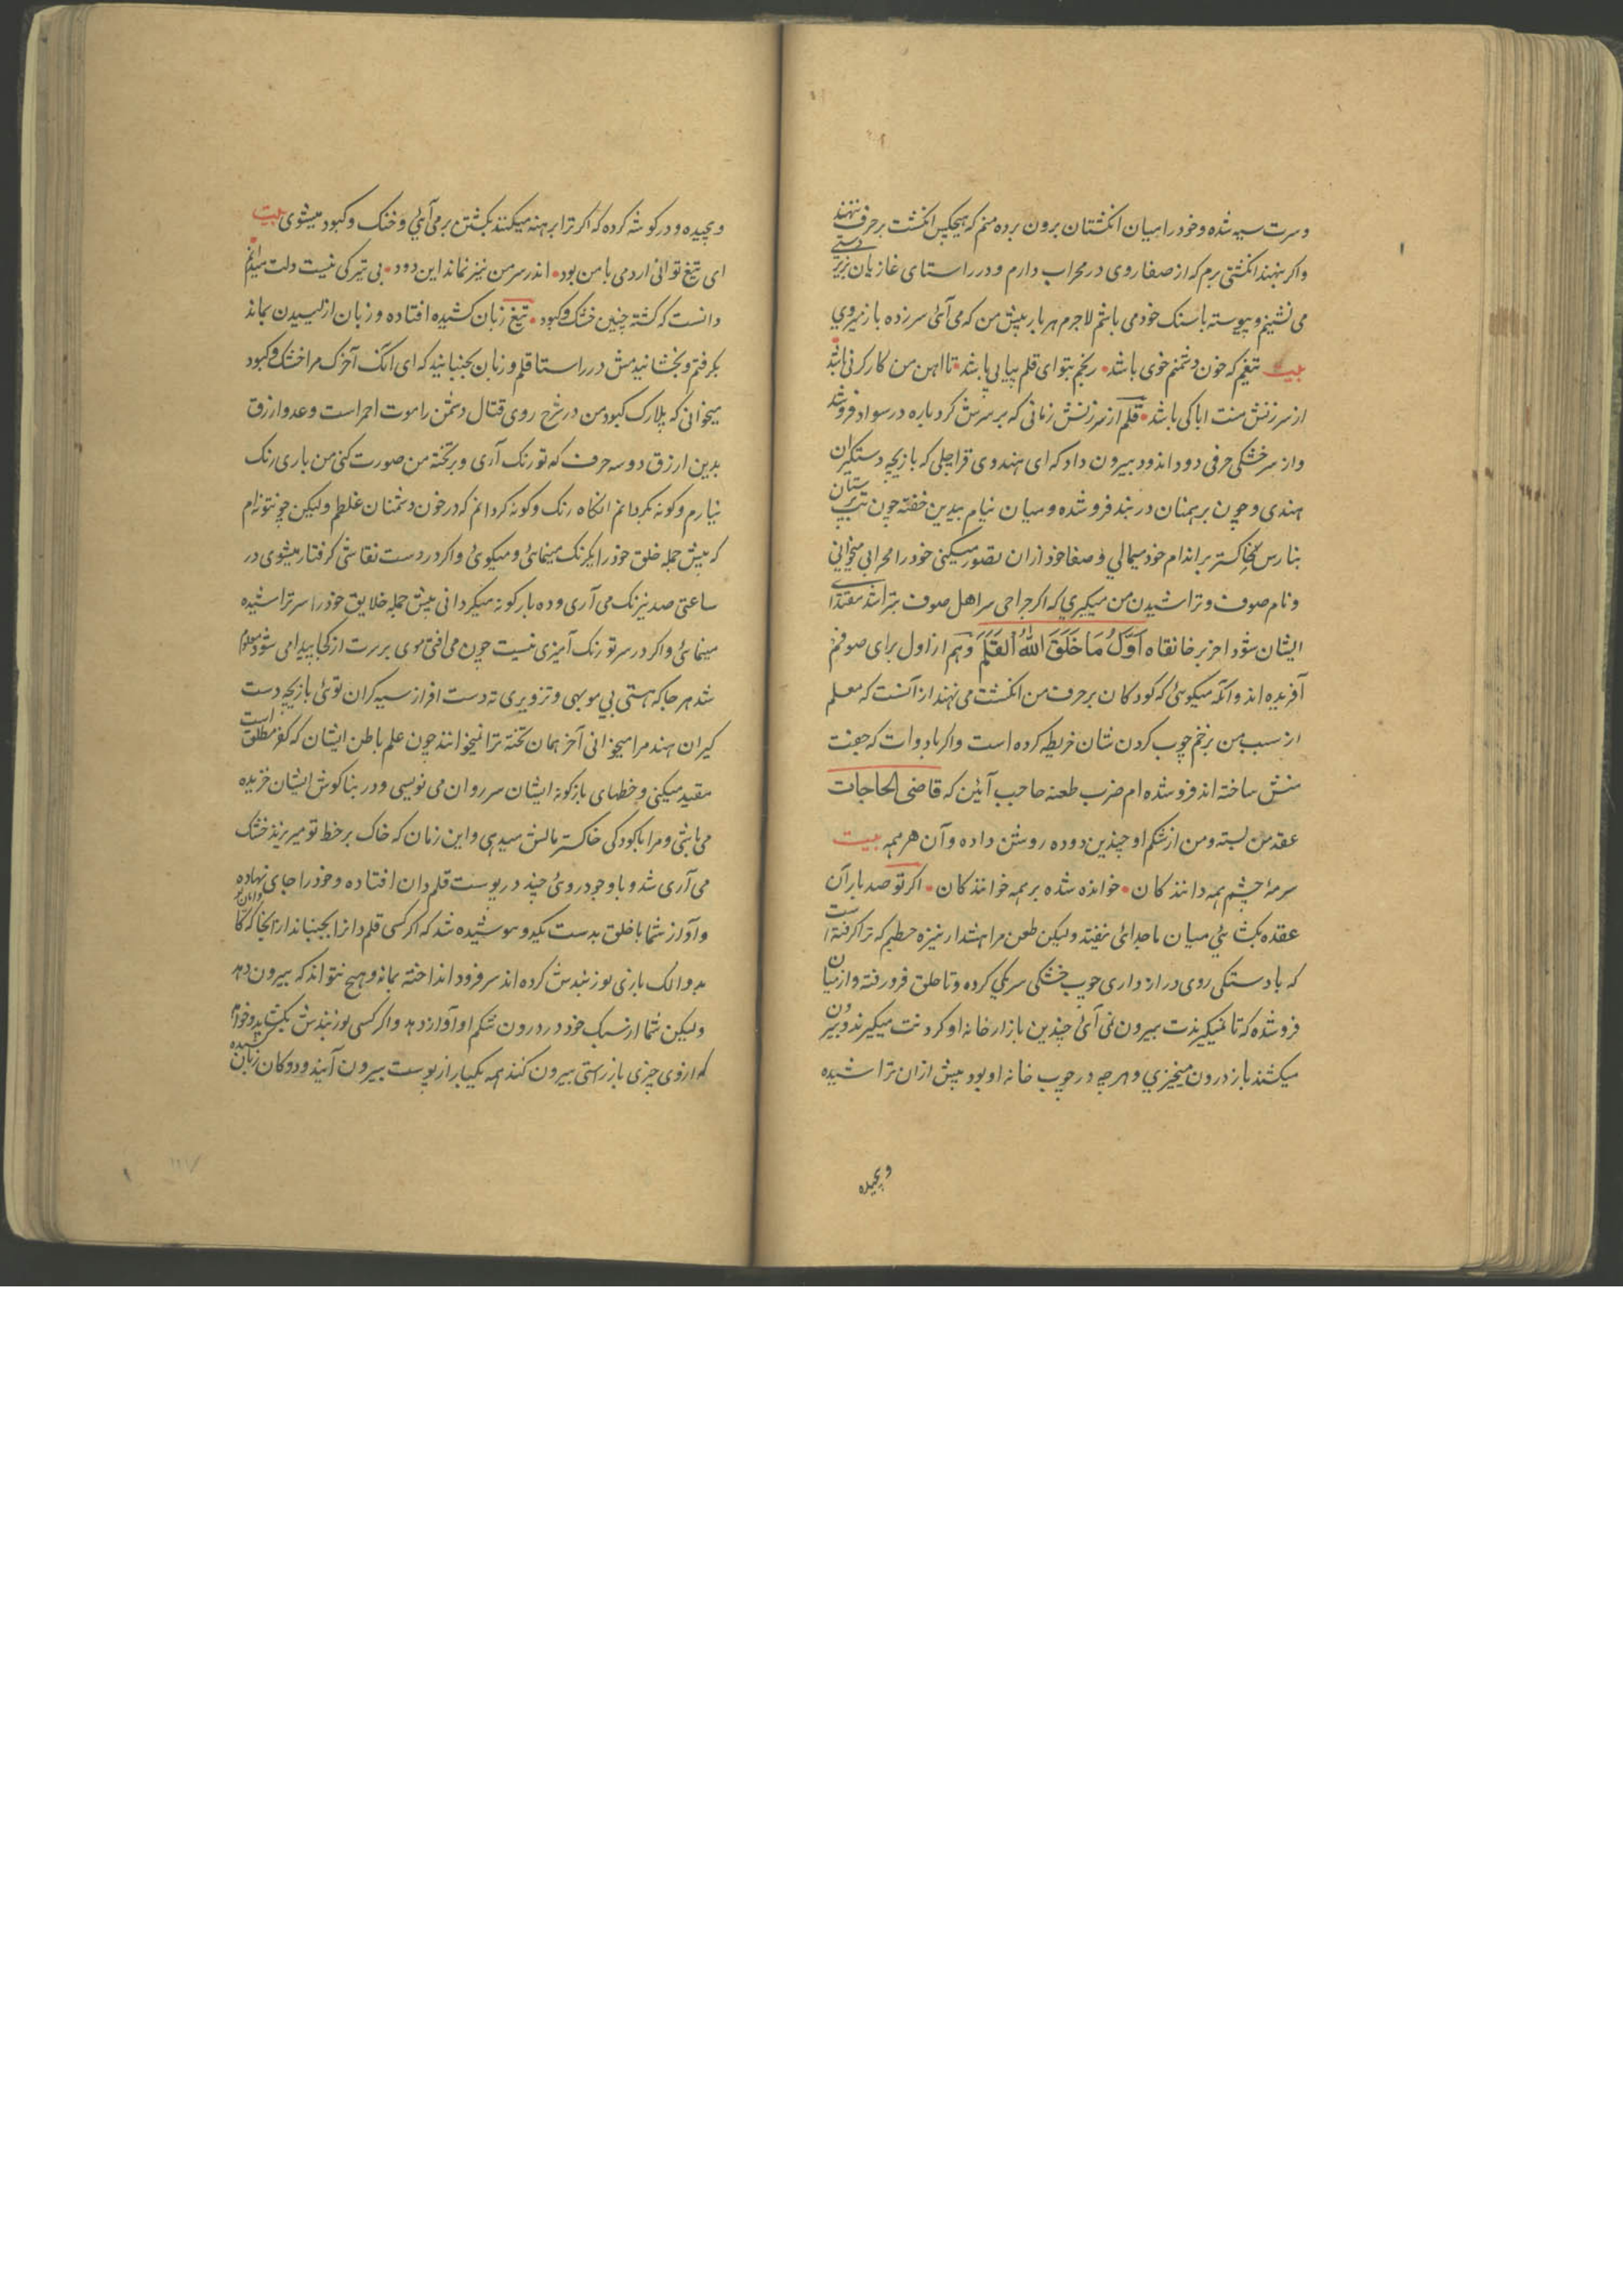 و سرت سیه شده و خود را میان انکشتان برون برده منم که هیچکس انکشت بر حرف ننهند
و اکر بنهند انکشتی برم که از صفا روی در محراب دارم و در راستای غازیان بزیر دستی
می نشینم و پیوسته با سنک خود می باشم لاجرم هر بار پیش من که می آئی سر زده باز میروی
بیت تیغم که خون دشمنم خوی باشد • رنجم بتو ای قلم پیاپی باشد • تا اهن من کارکر نی باشد
از سرزنش منت ابا کی باشد • قلم از سرزنش زمانی که بر سرش کرد باره در سواد فرو شد
و از سر خشکی حرفی دود اندود بیرون داد که ای هندوی قراچلی که بازیچه دستکیران
هندی و چون برهمنان در بند فرو شده و میان نیام بیدین خفته چون بت پرستان
بنارس خاکستر بر اندام خود میمالی و صفا خود ازان تصور میکنی خود را محرابی میخوانی
و نام صوف و تراشیدن من میکیری که اکر جراحی سر اهل صوف بتراشد مقتدای
ایشان شود اخر بر خانقاه اَوَّلُ مَا خَلَقَ اللهُ القَلَمَ وهم از اول برای صوفیم
آفریده اند وانکه میکوئی که کودکان بر حرف من انکشت می نهند از آنست که معلم
از سبب من بزخم چوب کردن شان خریطه کرده است و اکر با دوات که جفت
منش ساخته اند فرو شده ام ضرب طعنه صاحب آئین که قاضی الحاجات
عقد من بسته و من از شکم او چندین دوده روشن داده و آن هر همه بیت
سرمهٔ چشم همه دانندکان • خوانده شده بر همه خوانندکان • اکر تو صد بار آن
عقده بکشائی میان ما جدائی نیفتد ولیکن طعن مرا هشدار نیزه خطیم که ترا کرفته است
که با دستکی روی دراز داری چوب خشکی سر یکی کرده و تا حلق فرو رفته و از میان
فرو شده که تا نمیکیرندت بیرون نمی آئی چندین بازار خانه او کردنت میکیرند و بیرون
میکشند باز درون میخیزی و هرچه در چوب خانه او بود پیش ازان تراشیده
و پیچیده
و پیچیده و در کوشه کرده که اکر ترا برهنه میکنند بکشتن بر می آئی و خنک و کبود میشوی بیت
ای تیغ توانی اردمی با من بود • اندر سر من نیز نماند این دود • بی تیرکی نیست دلت میدانم
دانست که کشته چنین خشک و کبود • تیغ زبان کشیده افتاده و زبان از لیسیدن بماند
بکرفتم و بخشانیدمش در راستا قلم و زبان بجنبانید که ای انک آخر ک مرا خشک و کبود
میخوانی که پلارک کبود من در شرح روی قتال دشمن را موت احمر است و عدو ازرق
بدین ازرق دو سه حرف که تو رنک آری و بر تخته من صورت کنی من باری رنک
نیارم و کونه نکردانم انکاه رنک و کونه کردانم که در خون دشمنان غلطم ولیکن چو نتوانم
که پیش جمله خلق خود را یکرنک مینمائی و میکوئی و اکر در دست نقاشی کرفتار میشوی در
ساعتی صد نیرنک می آری و ده بار کونه میکردانی پیش جمله خلایق خود را سر تراشیده
مینمائی و اکر در سر تو رنک آمیزی نیست چون می افتی موی بر سرت از کجا پیدا می شود معلوم
شد هر جا که هستی بی موبهی و تزویری نه دست افراز سیه کران توئی بازیچه دست
کیران هند مرا میخوانی آخر همان تخته ترا نمیخوانند چون علم باطن ایشان که کفر مطلق است
مقید میکنی و خطهای باژکونه ایشان سر روان می نویسی و در بناکوش ایشان خزیده
می باشی و مرا با کودکی خاکستر مالش میدهی و این زمان که خاک بر خط تو میریزند خشک
می آری شد و با وجود روئی چند در پوست قلمدان افتاده و خود را جای نهاده
و آواز شما با خلق بدست بکیرد و پوشیده شد که اکر کسی قلمدانرا بجنباند از آنجا که
بدوالک بازی پوزبندش کرده اند سر فرود انداخته بماند و هیچ نتواند که بیرون دهد
ولیکن شما از سبک خود در درون شکم او آواز دهد و اکر کسی پوزبندش بکشاید و خواهد
که از وی چیزی باز رستی بیرون کند همه یکبار از پوست بیرون آیند و دوکان زبان کشیده